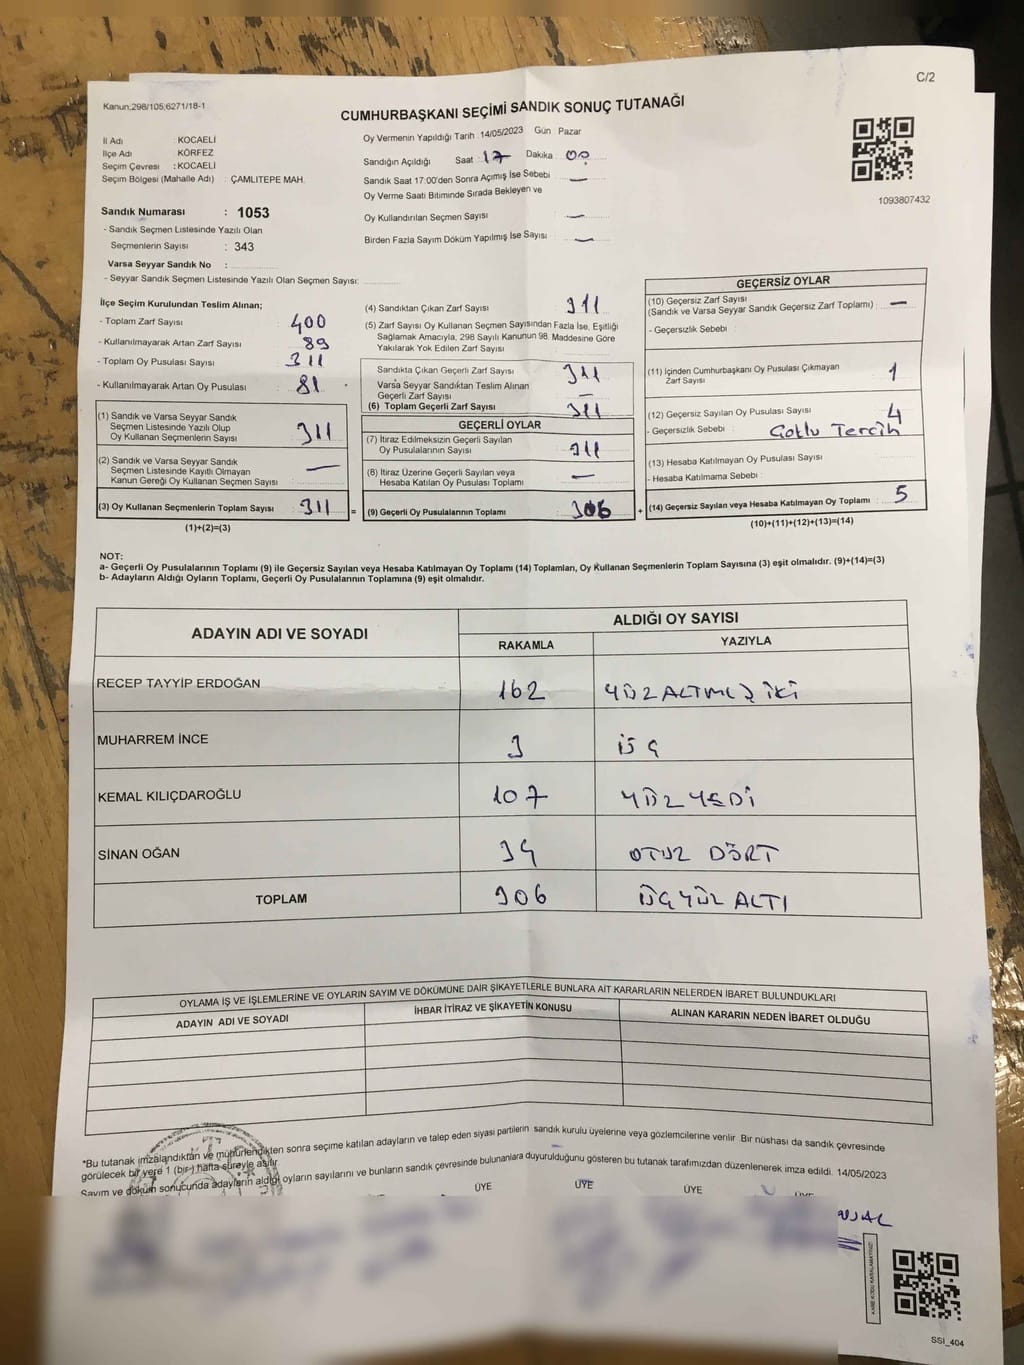 C/2
Kanun:298/105;6271/18-1
CUMHURBAŞKANI SEÇİMİ SANDIK SONUÇ TUTANAĞI
İl Adı : KOCAELİ
İlçe Adı : KÖRFEZ
Seçim Çevresi : KOCAELİ
Seçim Bölgesi (Mahalle Adı) : ÇAMLITEPE MAH.
Oy Vermenin Yapıldığı Tarih 14/05/2023 Gün Pazar
Sandığın Açıldığı Saat : 17 Dakika : 00
Sandık Saat 17:00'den Sonra Açımış İse Sebebi —
Oy Verme Saati Bitiminde Sırada Bekleyen ve
Oy Kullandırılan Seçmen Sayısı —
Birden Fazla Sayım Döküm Yapılmış İse Sayısı —
1093807432
Sandık Numarası : 1053
- Sandık Seçmen Listesinde Yazılı Olan
Seçmenlerin Sayısı : 343
Varsa Seyyar Sandık No :
- Seyyar Sandık Seçmen Listesinde Yazılı Olan Seçmen Sayısı:
İlçe Seçim Kurulundan Teslim Alınan;
- Toplam Zarf Sayısı : 400
- Kullanılmayarak Artan Zarf Sayısı : 89
- Toplam Oy Pusulası Sayısı : 311
- Kullanılmayarak Artan Oy Pusulası : 81
(1) Sandık ve Varsa Seyyar Sandık
Seçmen Listesinde Yazılı Olup
Oy Kullanan Seçmenlerin Sayısı 311
(2) Sandık ve Varsa Seyyar Sandık
Seçmen Listesinde Kayıtlı Olmayan
Kanun Gereği Oy Kullanan Seçmen Sayısı —
(3) Oy Kullanan Seçmenlerin Toplam Sayısı 311
(1)+(2)=(3)
=
(4) Sandıktan Çıkan Zarf Sayısı 311
(5) Zarf Sayısı Oy Kullanan Seçmen Sayısından Fazla İse, Eşitliği
Sağlamak Amacıyla, 298 Sayılı Kanunun 98. Maddesine Göre
Yakılarak Yok Edilen Zarf Sayısı
Sandıkta Çıkan Geçerli Zarf Sayısı 311
Varsa Seyyar Sandıktan Teslim Alınan
Geçerli Zarf Sayısı —
(6) Toplam Geçerli Zarf Sayısı 311
GEÇERLİ OYLAR
(7) İtiraz Edilmeksizin Geçerli Sayılan
Oy Pusulalarının Sayısı 311
(8) İtiraz Üzerine Geçerli Sayılan veya
Hesaba Katılan Oy Pusulası Toplamı —
(9) Geçerli Oy Pusulalarının Toplamı 306
+
GEÇERSİZ OYLAR
(10) Geçersiz Zarf Sayısı
(Sandık ve Varsa Seyyar Sandık Geçersiz Zarf Toplamı) : —
- Geçersizlik Sebebi :
(11) İçinden Cumhurbaşkanı Oy Pusulası Çıkmayan
Zarf Sayısı 1
(12) Geçersiz Sayılan Oy Pusulası Sayısı 4
- Geçersizlik Sebebi : Çoklu Tercih
(13) Hesaba Katılmayan Oy Pusulası Sayısı
- Hesaba Katılmama Sebebi :
(14) Geçersiz Sayılan veya Hesaba Katılmayan Oy Toplamı 5
(10)+(11)+(12)+(13)=(14)
NOT:
a- Geçerli Oy Pusulalarının Toplamı (9) ile Geçersiz Sayılan veya Hesaba Katılmayan Oy Toplamı (14) Toplamları, Oy Kullanan Seçmenlerin Toplam Sayısına (3) eşit olmalıdır. (9)+(14)=(3)
b- Adayların Aldığı Oyların Toplamı, Geçerli Oy Pusulalarının Toplamına (9) eşit olmalıdır.
ADAYIN ADI VE SOYADI
ALDIĞI OY SAYISI
RAKAMLA YAZIYLA
RECEP TAYYİP ERDOĞAN 162 YÜZALTMIŞ İKİ
MUHARREM İNCE 3 ÜÇ
KEMAL KILIÇDAROĞLU 107 YÜZ YEDİ
SİNAN OĞAN 34 OTUZ DÖRT
TOPLAM 306 ÜÇ YÜZ ALTI
OYLAMA İŞ VE İŞLEMLERİNE VE OYLARIN SAYIM VE DÖKÜMÜNE DAİR ŞİKAYETLERLE BUNLARA AİT KARARLARIN NELERDEN İBARET BULUNDUKLARI
ADAYIN ADI VE SOYADI İHBAR İTİRAZ VE ŞİKAYETİN KONUSU ALINAN KARARIN NEDEN İBARET OLDUĞU
*Bu tutanak imzalandıktan ve mühürlendikten sonra seçime katılan adayların ve talep eden siyasi partilerin sandık kurulu üyelerine veya gözlemcilerine verilir. Bir nüshası da sandık çevresinde
görülecek bir yere 1 (bir) hafta süreyle asılır.
Sayım ve döküm sonucunda adayların aldığı oyların sayılarını ve bunların sandık çevresinde bulunanlara duyurulduğunu gösteren bu tutanak tarafımızdan düzenlenerek imza edildi. 14/05/2023
ÜYE ÜYE ÜYE
SSI_404